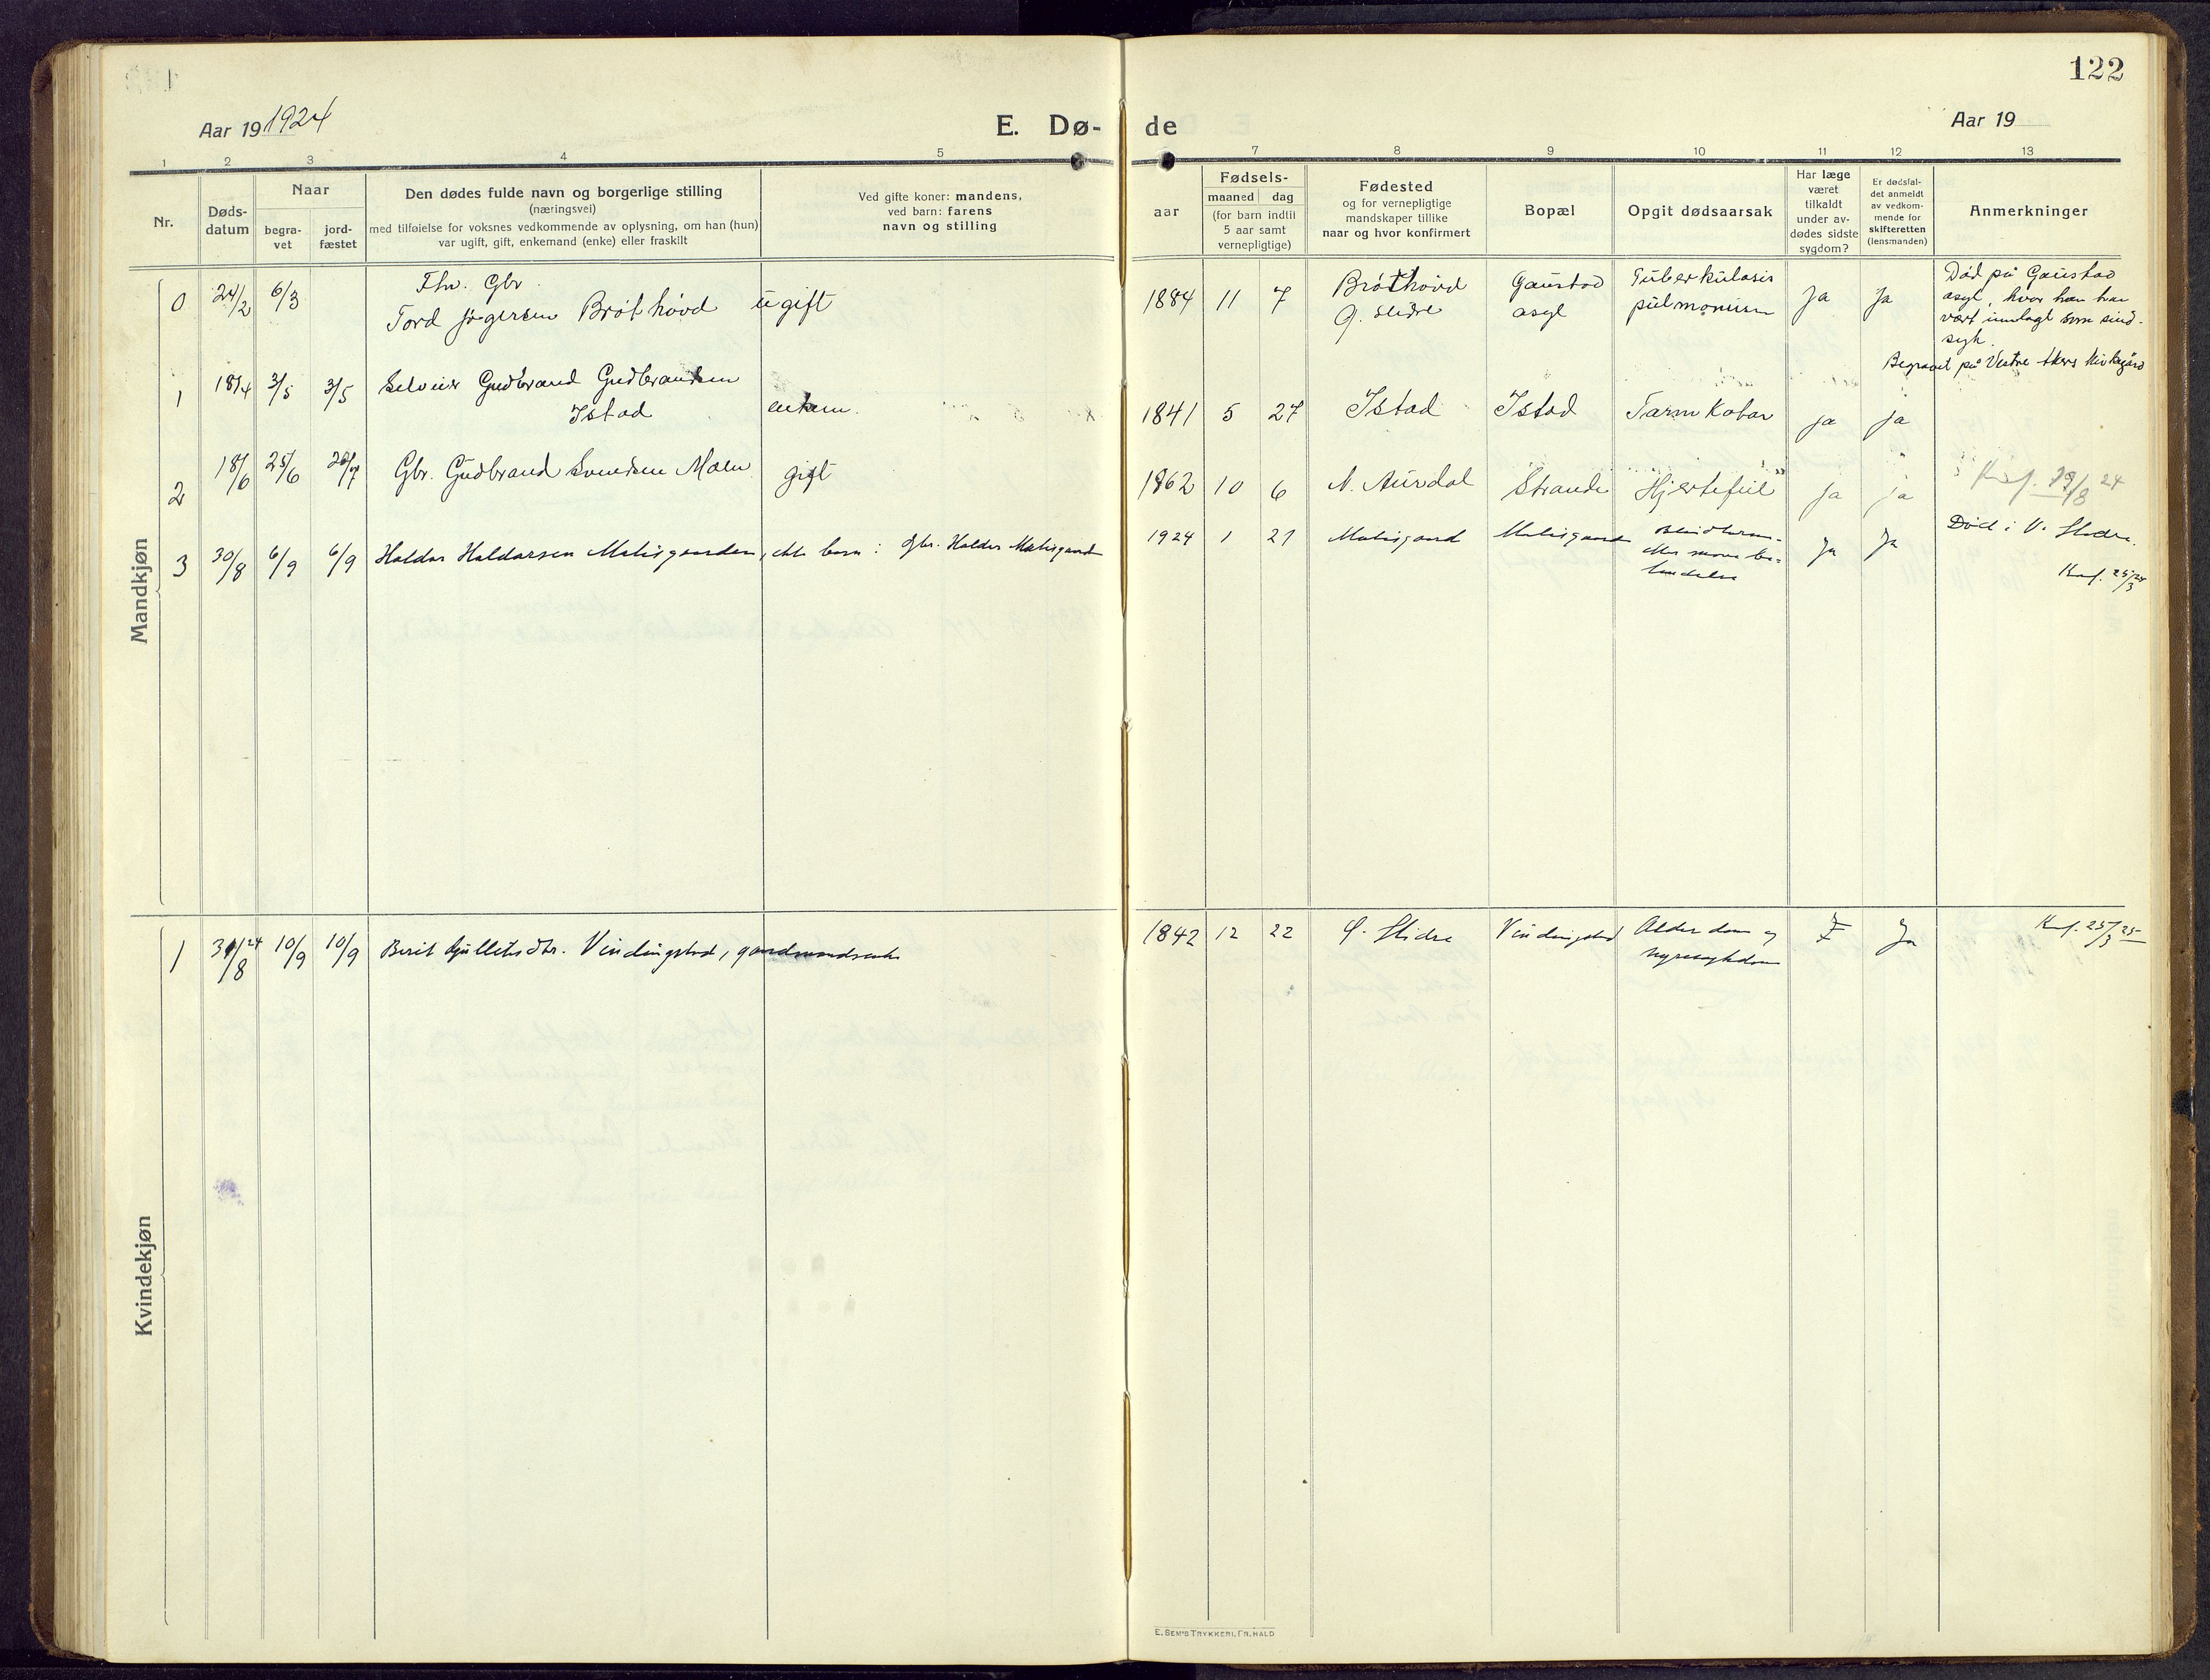 122
Aar 19 1924
E. Dø- de
Aar 19
1 2 3 4 5 7 8 9 10 11 12 13
Nr.
Døds-
datum
Naar
begra-
vet
jord-
fæstet
Den dødes fulde navn og borgerlige stilling
(næringsvei)
med tilføielse for voksnes vedkommende av oplysning, om han (hun)
var ugift, gift, enkemand (enke) eller fraskilt
Ved gifte koner: mandens,
ved barn: farens
navn og stilling
aar
Fødsels-
maaned dag
(for barn indtil
5 aar samt
vernepligtige)
Fødested
og for vernepligtige
mandskaper tillike
naar og hvor konfirmert
Bopæl
Opgit dødsaarsak
Har læge
været
tilkaldt
under av-
dødes sidste
sygdom?
Er dødsfal-
det anmeldt
av vedkom-
mende for
skifteretten
(lensmanden)
Anmerkninger
Mandkjøn
0 24/2 6/3 Fhv. Gbr.
Tord Jørgersen Bröthövd ugift
1884 11 7 Bröthövd
Ø. Slidre
Gaustad
asyl
Tuberkulosis
pulmonum
Ja Ja
Död på Gaustad
asyl, hvor han har
vært innlagt som sind-
syk.
Begravet på Vestre Akers Kirkegård
1 18/4 3/5 3/5 Selveier Gudbrand Gudbrandsen
Istad enkem.
1841 5 27 Istad Istad Tarm Katar ja ja
2 18/6 25/6 Gbr. Gudbrand Svendsen Moen gift
1862 10 6 N. Aurdal Strande Hjertefeil ja ja 19/8 24
3 30/8 6/9 6/9 Haldor Haldorsen Melisgaarden, ekte barn: Gbr. Haldor Melisgaard
1924 1 21 Melisgaard Melisgaard
Ja Ja Död i V. Slidre.
25/3
Kvindekjøn
1 31/8 24 10/9 10/9 Berit Kjulletsdtr. Vindingstad, gaardmandsenke
1842 12 22 Ø. Slidre Vindingstad Alderdom og
nyresykdom
Ja 25/3 25
E. SEM'S TRYKKERI, FR. HALD